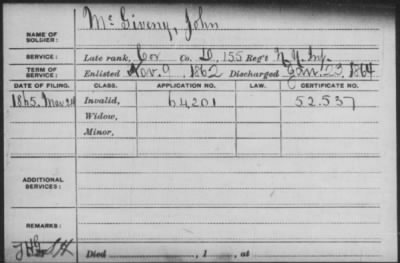 NAME OF SOLDIER: McGiveny, John
SERVICE: Late rank, Cor Co. D, 155 Reg't N.Y. Inf.
TERM OF SERVICE: Enlisted Nov. 9, 1862 Discharged Jan. 23, 1864
DATE OF FILING. CLASS. APPLICATION NO. LAW. CERTIFICATE NO.
1865. Mar. 24 Invalid, 64,201 52.537
Widow,
Minor,
ADDITIONAL SERVICES:
REMARKS:
Died , 1 , at